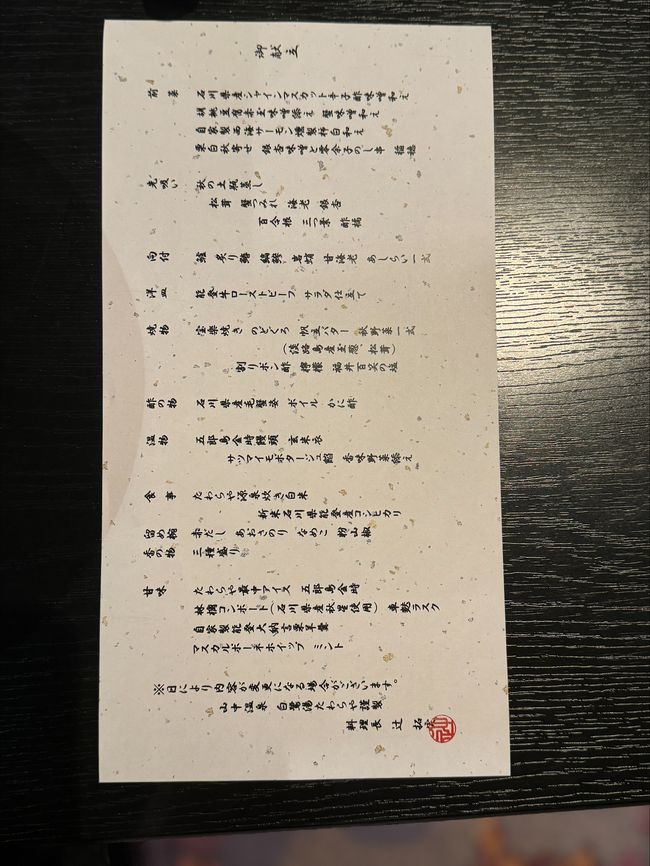 御献立
前菜 石川県産シャインマスカット辛子酢味噌和え
胡桃豆腐赤玉味噌添え 蟹味噌和え
自家製西海サーモン燻製拌白和え
栗白秋寄せ 銀杏味噌と零余子のし串 稲穂
先吸い 秋の土瓶蒸し
松茸 蟹つみれ 海老 銀杏
百合根 三つ葉 酢橘
向付 炙り 甘海老 あしらい一式
洋皿 能登牛ローストビーフ サラダ仕立て
焼物 宝楽焼き のどくろ 帆立バター 秋野菜一式
(淡路島産玉葱、松茸)
割りポン酢 檸檬 福井百笑の塩
酢の物 石川県産毛蟹姿 ボイル かに酢
温物 五郎島金時饅頭 玄米衣
サツマイモポタージュ餡 香味野菜添え
食事 たわらや源泉炊き白米
新米石川県能登産コシヒカリ
留め椀 赤だし あおさのり なめこ 粉山椒
香の物 三種盛り
甘味 たわらや最中アイス 五郎島金時
林檎コンポート(石川県産秋星使用) 車麩ラスク
自家製能登大納言栗羊羹
マスカルポーネホイップ ミント
※日により内容が変更になる場合がございます。
山中温泉 白鷺湯たわらや謹製
料理長 辻 拓